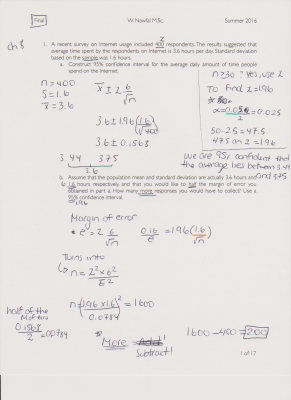 Final
W.Nawfal M.Sc.
Summer 2016
ch 8
1. A recent survey on Internet usage included 400 respondents. The results suggested that
average time spent by the respondents on Internet is 3.6 hours per day. Standard deviation
based on the sample was 1.6 hours.
a. Construct 95% confidence interval for the average daily amount of time people
spend on the Internet.
n = 400
S = 1.6
x̄ = 3.6
x̄ ± 2 6/√n
3.6 ± 1.96 (1.6/√400)
3.6 ± 0.1568
3.44 3.75
3.6
n ≥ 30 ? yes, use z
To find z = 1.96
= 0.025
50 - 2.5 = 47.5
47.5 on z = 1.96
we are 95% confident that
the average lies between 3.44
and 3.75
b. Assume that the population mean and standard deviation are actually 3.6 hours and
1.6 hours respectively and that you would like to half the margin of error you
obtained in part a. How many more responses you would have to collect? Use a
95% confidence interval.
= 1.96
Margin of error
• e = 2 6/√n
0.16/e = 1.96 (1.6/√n)
Turns into
n = z² × 6² / E²
n = (1.96 × 1.6)² / 0.0784 = 1600
half of the
M of Error
0.1568/2 = 0.0784
* More
Subtract!
1600 - 400 = 1200
1 of 17